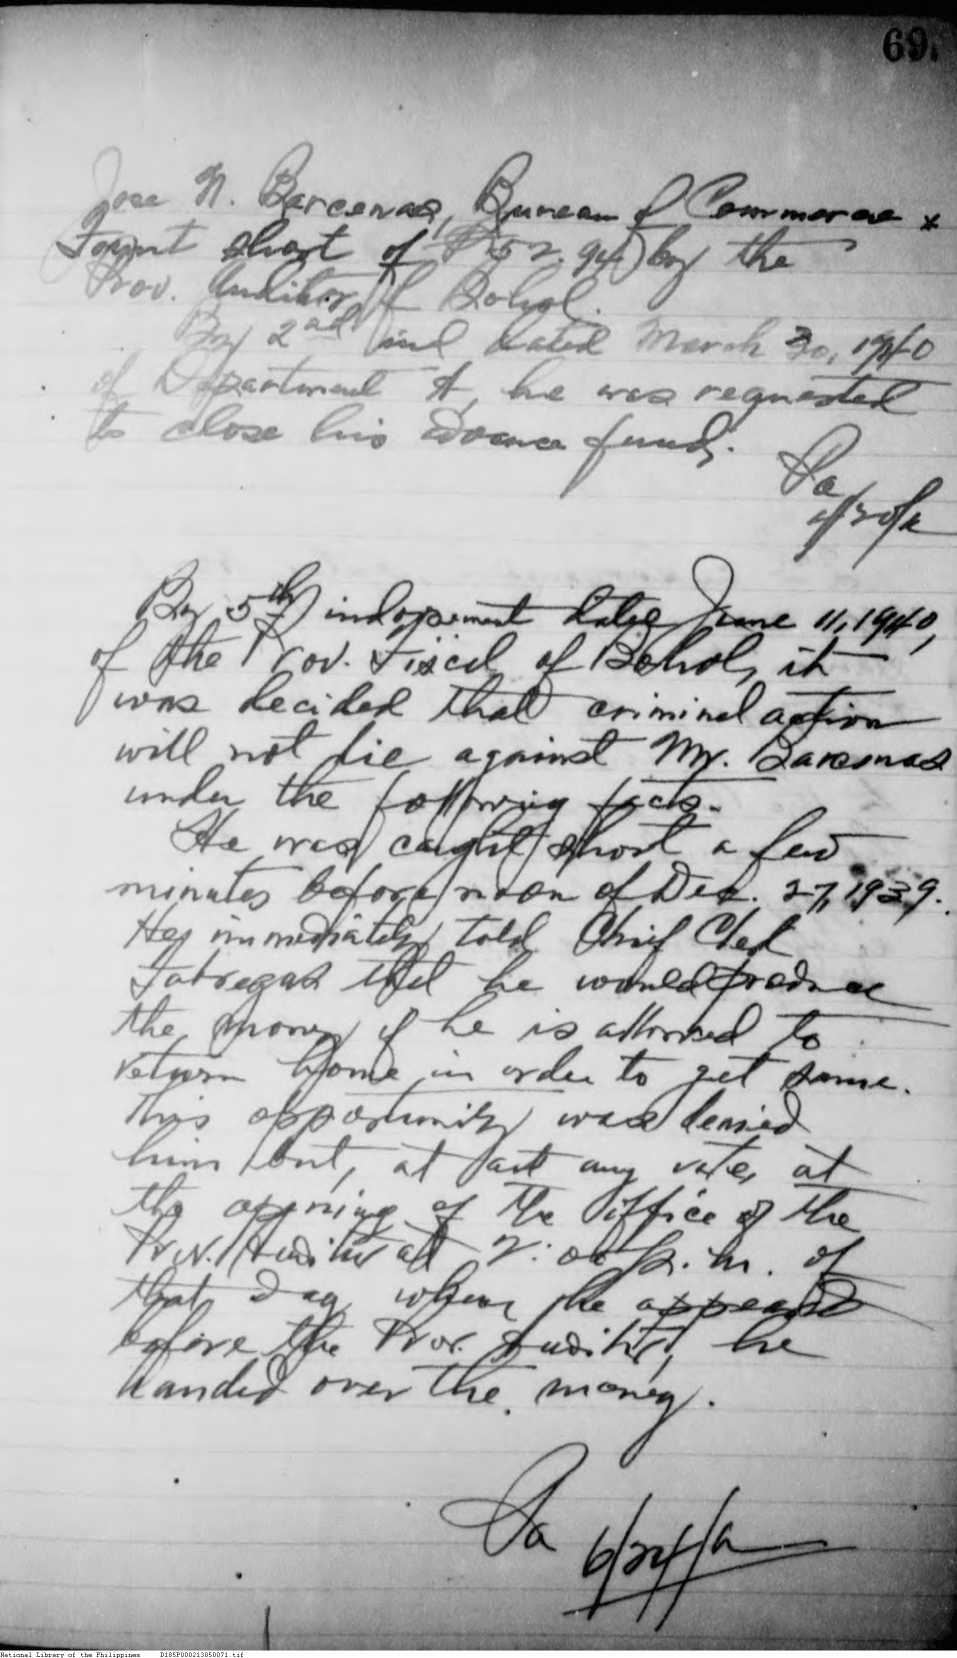 69.
Jose N. Barcenas, Bureau of Commerce x
Found short of ₱52.94 by the
Prov. Auditor of Bohol.
By 2nd ind dated March 30, 1940
of Department A, he was requested
to close his advance fund.
By 5th indorsement date June 11, 1940,
of the Prov. Fiscal of Bohol, it
was decided that criminal action
will not lie against Mr. Barcenas
under the following facts.
He was caught short a few
minutes before noon of Dec. 27, 1939.
He immediately told Chief Clerk
Fabregas that he would produce
the money if he is allowed to
return home in order to get same.
This opportunity was denied
him but, at any rate, at
the opening of the office of the
Prov. Auditor at 2:00 p.m. of
that day when he appeared
before the Prov. Auditor, he
handed over the money.
6/24/
National Library of the Philippines D185P000213850071.tif